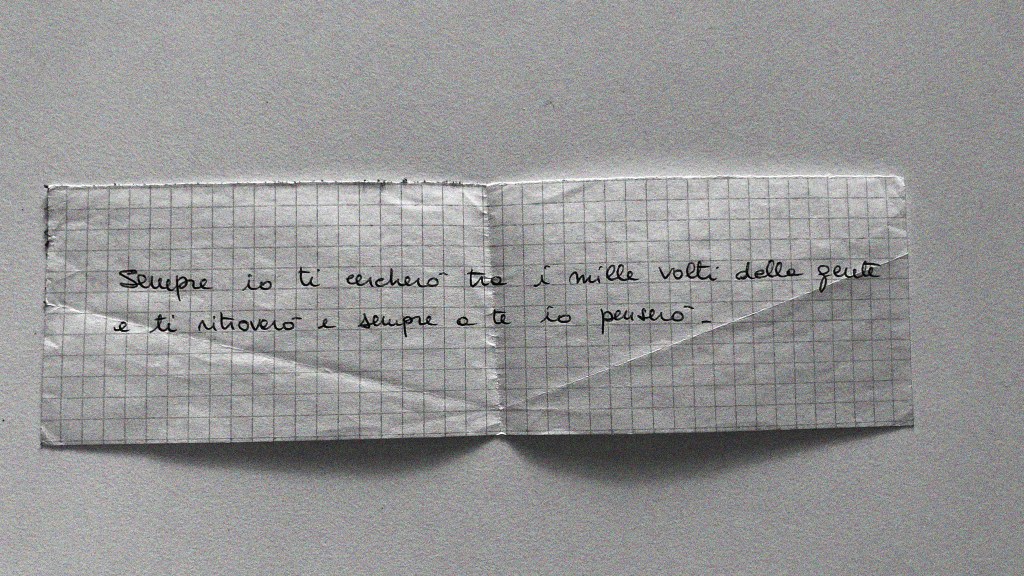 Sempre io ti cercherò tra i mille volti della gente
e ti ritroverò e sempre a te io penserò -